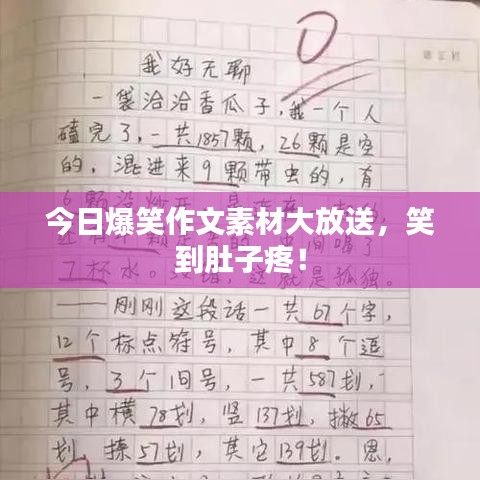 0
我好无聊
一袋洽洽香瓜子，我一个人
磕完了，一共1857颗，26颗是空
的，混进来9颗带虫的，有
今日爆笑作文素材大放送，笑
到肚子疼！
7杯水。就是孤独。
——刚刚这段话一共67个字，
12个标点符号，其中8个逗
号，3个句号，一共587划，
其中横78划，竖137划，撇65
划，捺57划，其它139划。恩，